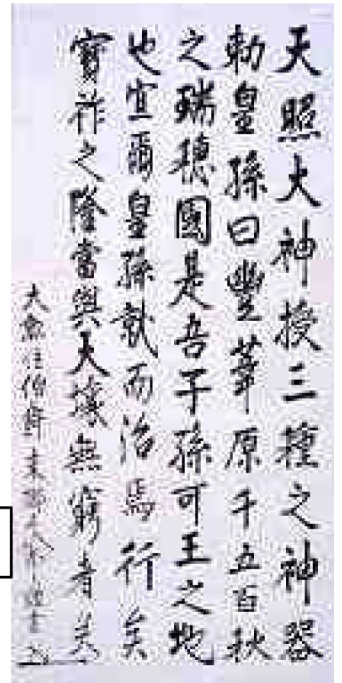 天照大神授三種之神器
勅皇孫曰豐葦原千五百秋
之瑞穗國是吾子孫可王之地
也宜爾皇孫就而治焉行矣
寶祚之隆當與天壤無窮者矣
大勲位伯爵東郷平八郎謹書